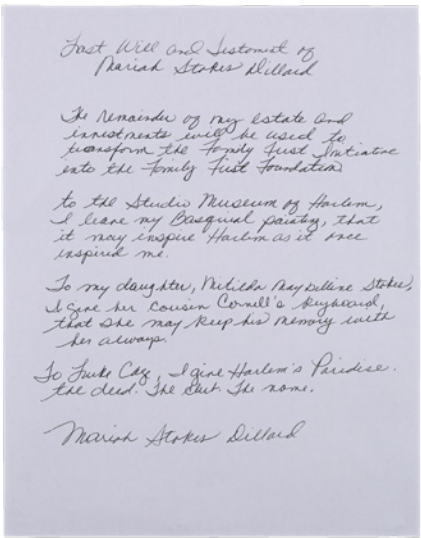 Last Will and Testament of
Mariah Stokes Dillard
The remainder of my estate and
investments will be used to
transform the Family First Initiative
into the Family First Foundation
to the Studio Museum of Harlem,
I leave my Basquiat painting, that
it may inspire Harlem as it once
inspired me.
To my daughter, Matilda Maybelline Stokes,
I give her cousin Cornell's keyboard,
that she may keep his memory with
her always.
To Luke Cage, I give Harlem's Paradise.
the deed. The . The name.
Mariah Stokes Dillard